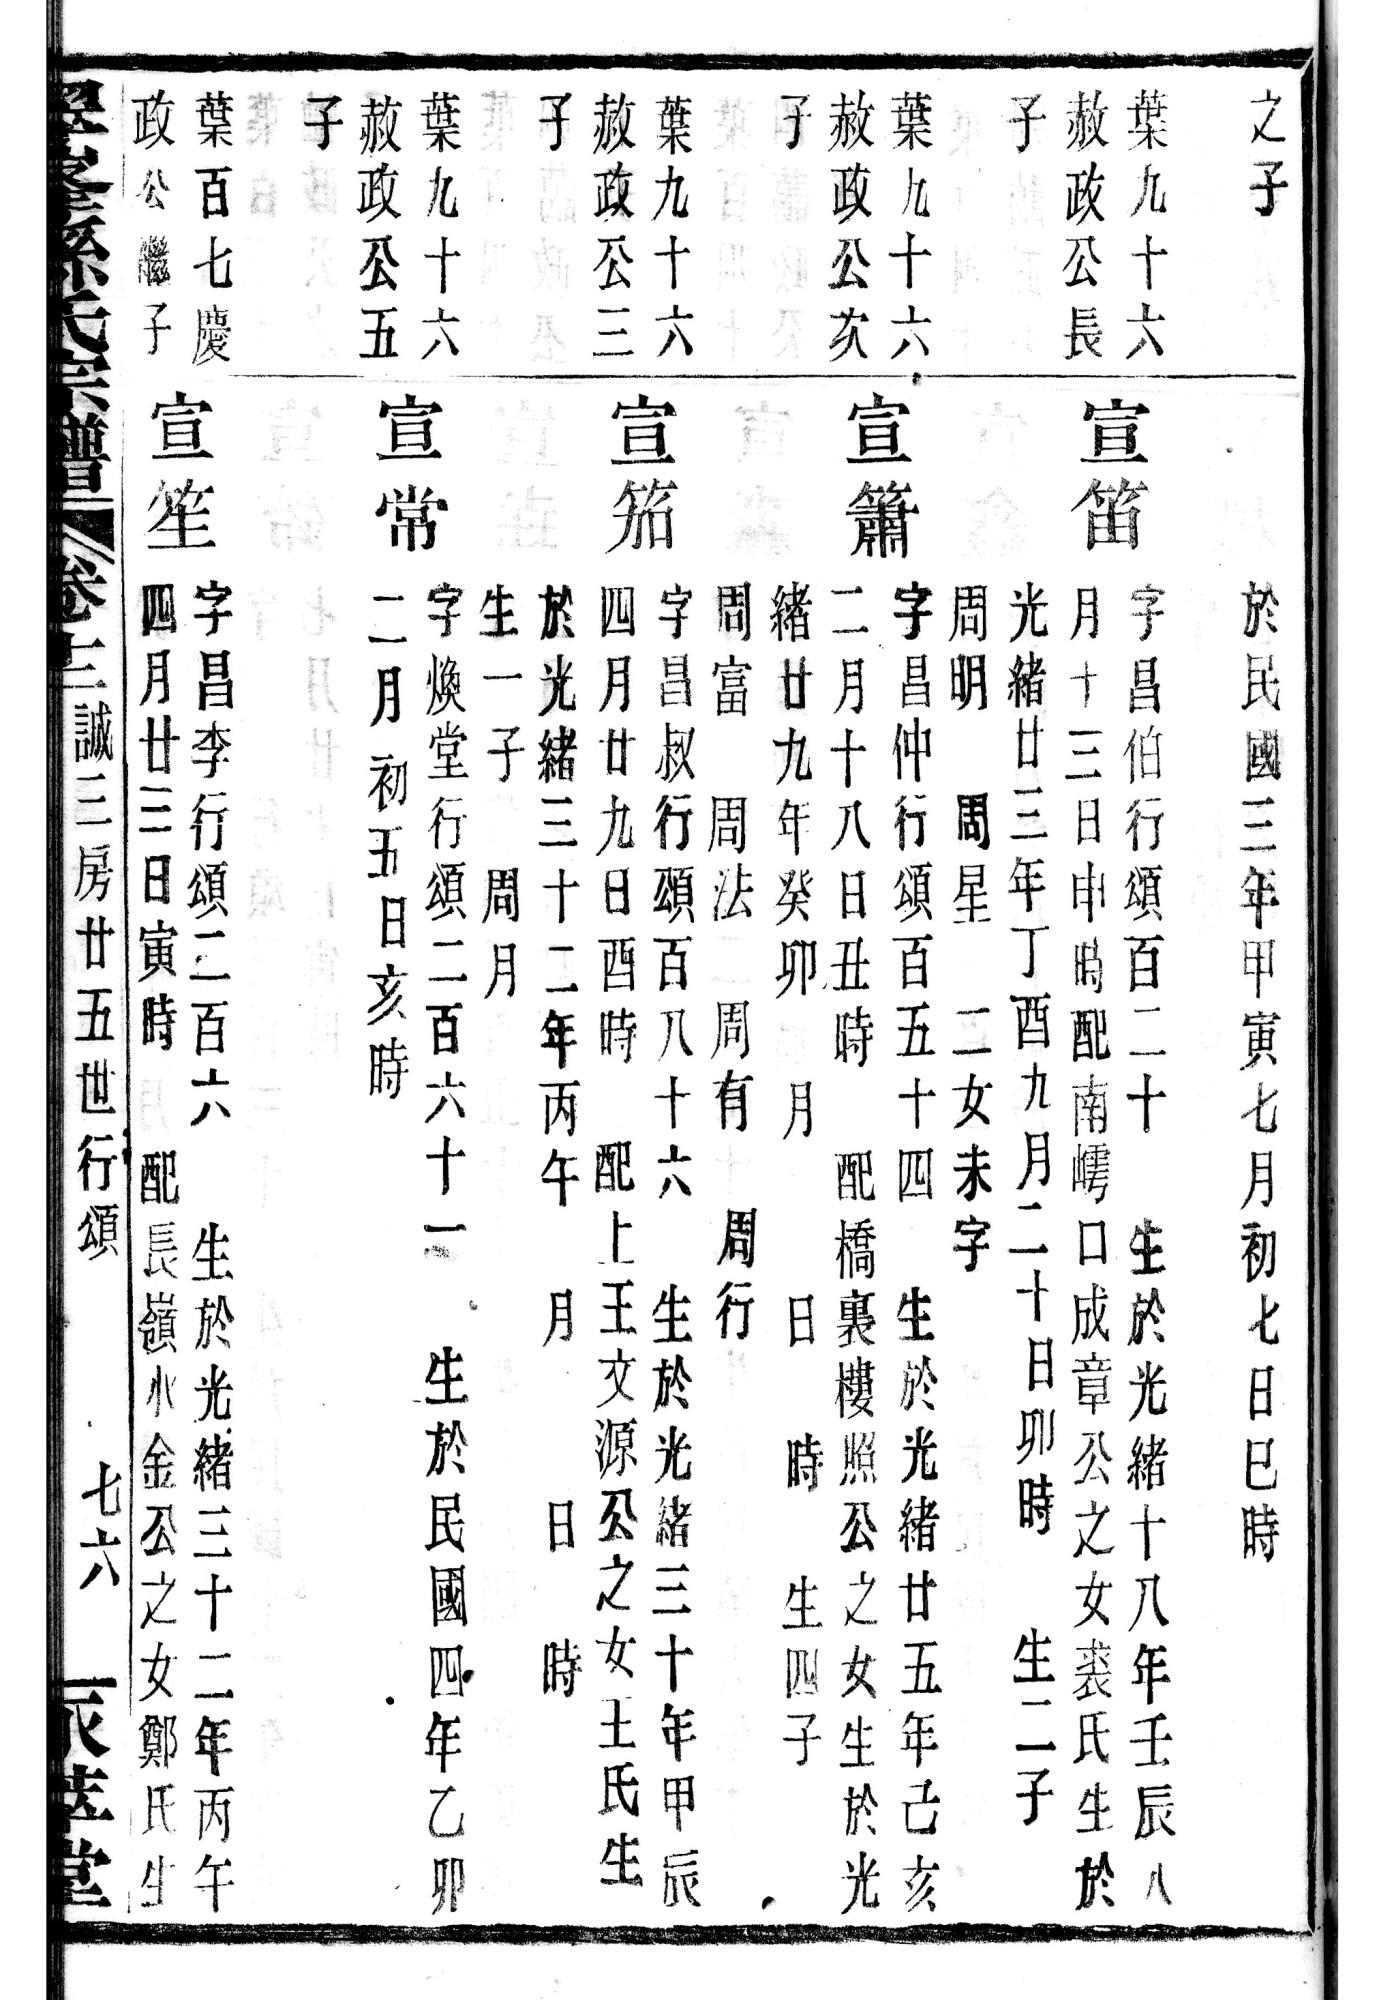 之子
於民國三年甲寅七月初七日巳時
葉九十六
赦政公長
子
宣笛
字昌伯行頌百二十 生於光緒十八年壬辰八
月十三日申時配南嶀口成章公之女裘氏生於
光緒廿三年丁酉九月二十日卯時 生二子
周明 周星 二女未字
葉九十六
赦政公次
子
宣簫
字昌仲行頌百五十四 生於光緒廿五年己亥
二月十八日丑時 配橋裏樓照公之女生於光
緒廿九年癸卯 月 日 時 生四子
周富 周法 周有 周行
葉九十六
赦政公三
子
宣笳
字昌叔行頌百八十六 生於光緒三十年甲辰
四月廿九日酉時 配上王文源公之女王氏生
於光緒三十二年丙午 月 日 時
生一子 周月
葉九十六
赦政公五
子
宣常
字煥堂行頌二百六十一 生於民國四年乙卯
二月初五日亥時
葉百七慶
政公繼子
宣笙
字昌李行頌二百六 生於光緒三十二年丙午
四月廿三日寅時 配長嶺水金公之女鄭氏生
孫氏宗譜 卷十二 誠三房廿五世行頌 七六 萃堂